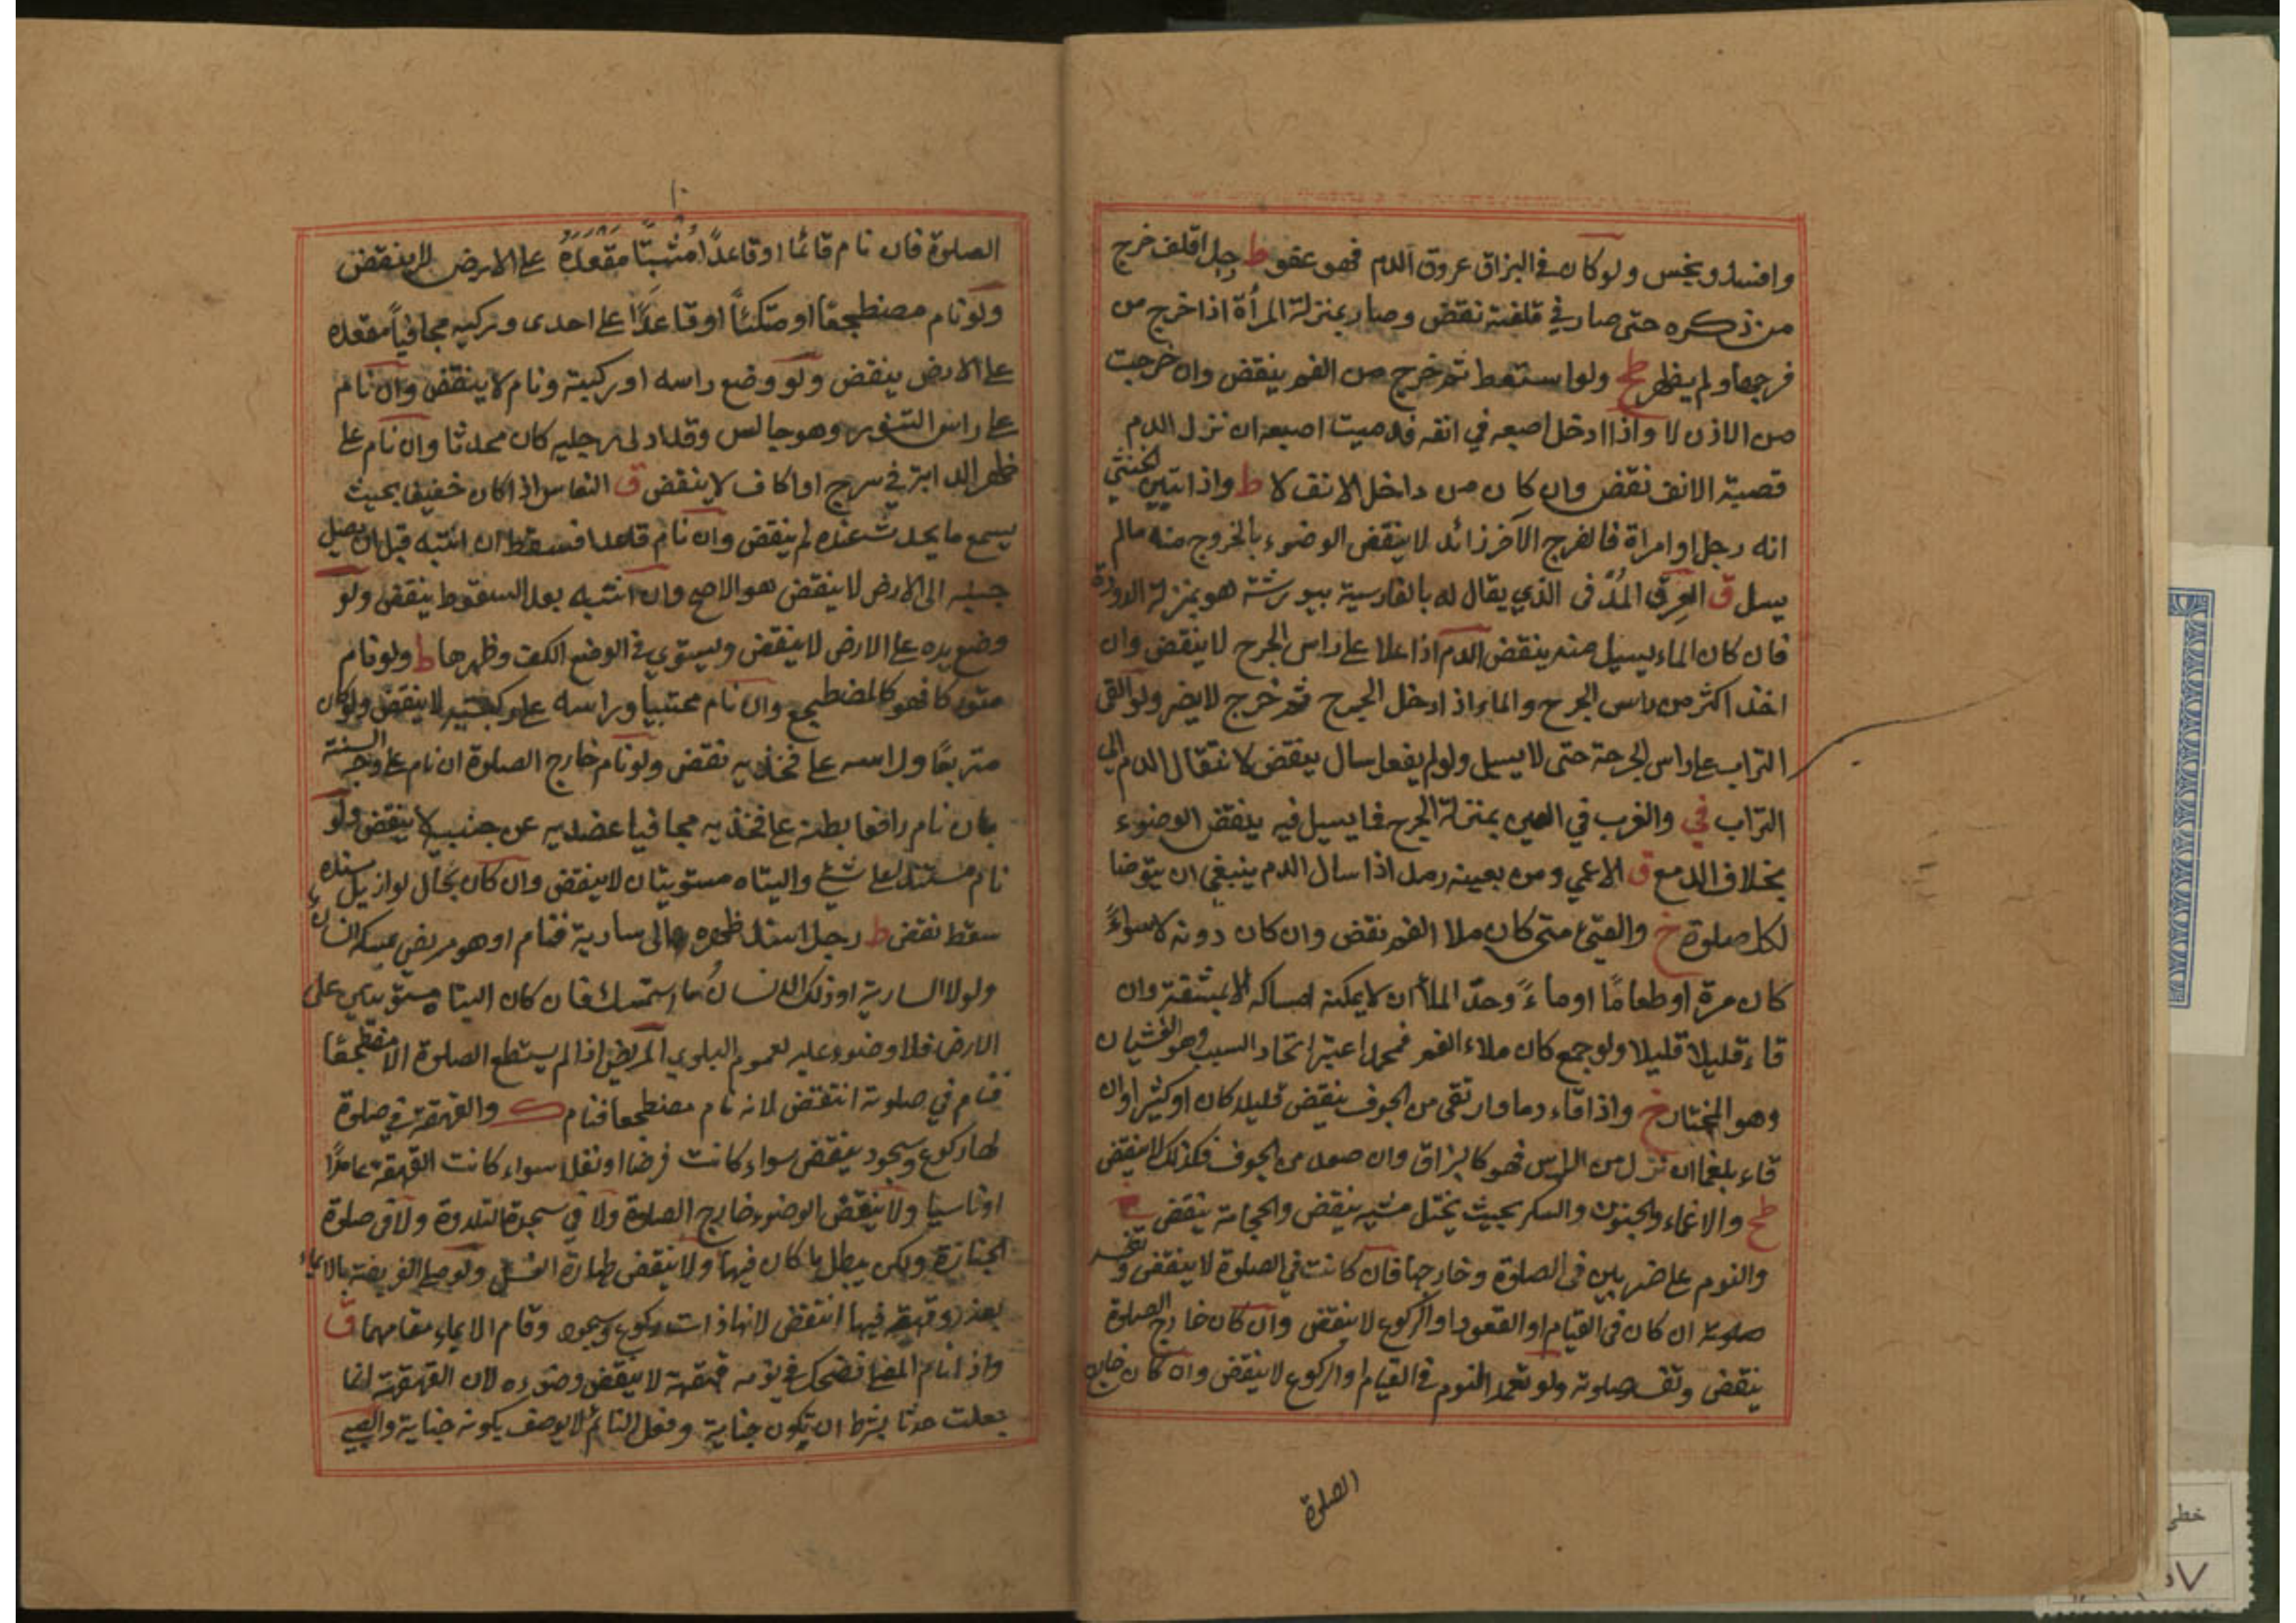 وافسد وينجس ولو كان في البزاق عروق الدم فهو عفو ط رجل اقلف خرج
من ذكره حتى صار في قلفته نقض وصار بمنزلة المرأة اذا خرج من
فرجها ولم يظهر طح ولو استعط ثم خرج من الفم ينقض وان خرجت
من الاذن لا واذا ادخل اصبعه في انفه فدميت اصبعه ان نزل الدم
قصبة الانف نقض وان كان من داخل الانف لا ط واذا تبين الخنثى
انه رجل او امراة فالفرج الآخر زائد لا ينقض الوضوء بالخروج منه مالم
يسل ق العرق المدنى الذي يقال له بالفارسية رشته هو بمنزلة الدودة
فان كان الماء يسيل منه ينقض الدم اذا علا على راس الجرح لا ينقض وان
اخذ اكثر من راس الجرح والماء اذ ادخل الجرح ثم خرج لا يضر ولو القى
التراب على راس الجرحة حتى لا يسيل ولو لم يفعل سال ينقض لانتقال الدم الى
التراب في والغرب في العين بمنزلة الجرح فما يسيل فيه ينقض الوضوء
بخلاف الدمع ق الاعمى ومن بعينه رمد اذا سال الدم ينبغي ان يتوضا
لكل صلوة خ والقئ متى كان ملا الفم نقض وان كان دونه لا سواءً
كان مرة او طعامًا او ماءً وحدّ الملأ ان لا يمكنه امساكه الا بمشقة وان
قاء قليلا قليلا ولو جمع كان ملاء الفم فمحمد اعتبر اتحاد السبب وهو الغشيان
وهو المختار خ واذا قاء دما وارتقى من الجوف ينقض قليلا كان او كثيرا وان
قاء بلغما ان نزل من الراس فهو كالبزاق وان صعد من الجوف فكذلك لا ينقض
طح والاغماء والجنون والسكر بحيث يختل مشيه ينقض والحجامة ينقض
والنوم على ضربين في الصلوة وخارجها فان كانت في الصلوة لا ينقض
صلوته ان كان في القيام او القعود او الركوع لا ينقض وان كان خارج الصلوة
ينقض صلوته ولو تعمد النوم في القيام والركوع لا ينقض وان كان خارج
الصلوة
١٠
الصلوة فان نام قائما او قاعدًا مُثبتًا مقعده على الارض لا ينقض
ولو نام مضطجعا او متكئًا او قاعدًا على احدى وركيه مجافيًا مقعده
على الارض ينقض ولو وضع راسه او ركبته ونام لا ينقض وان نام
على راس التنور وهو جالس وقد ادلى رجليه كان محدثا وان نام على
ظهر الدابة في سرج او اكاف لا ينقض ق النعاس اذا كان خفيفا بحيث
يسمع ما يحدث عنده لم ينقض وان نام قاعدا فسقط ان انتبه قبل ان يصل
جنبه الى الارض لا ينقض هو الاصح وان انتبه بعد السقوط ينقض ولو
وضع يده على الارض لا ينقض ويستوي في الوضع الكف وظهرها ط ولو نام
متوركا فهو كالمضطجع وان نام محتبيا وراسه على ركبتيه لا ينقض ولو كان
متربعًا وراسه على فخذيه نقض ولو نام خارج الصلوة ان نام على وجه السنة
بان نام رافعا بطنه على فخذيه مجافيا عضديه عن جنبيه لا ينقض ولو
نام مستندا على شئ واليتاه مستويتان لا ينقض وان كان بحال لو ازيل سنده
سقط نقض ط رجل استند ظهره الى سارية فنام او هو مريض يمسكه انسان
ولولا السارية او ذلك الانسان ما استمسك فان كان اليتاه مستويتين على
الارض فلا وضوء عليه لعموم البلوي المريض اذا لم يستطع الصلوة الا مضطجعًا
فنام في صلوته انتقض لانه نام مضطجعا فنام ك والقهقهة في صلوة
لها ركوع وسجود ينقض سواء كانت فرضا او نفلا سواء كانت القهقهة عامدًا
او ناسيا ولا ينقض الوضوء خارج الصلوة ولا في سجدة التلاوة ولا في صلوة
الجنازة ولكن يبطل ما كان فيها ولا ينقض طهارة الغسل ولو صلى الفريضة بالايماء
بعذر وقهقه فيها انتقض لانها ذات ركوع وسجود وقام الايماء مقامهما ق
واذا نام المصلي فضحك في نومه قهقهة لا ينقض وضوءه لان القهقهة انما
جعلت حدثا بشرط ان تكون جناية وفعل النائم لا يوصف بكونه جناية والصبي
خطي